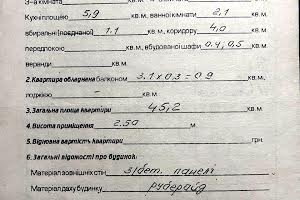 3-я кімната кв.м.
Кухні площею 5,9 кв.м, ванної кімнати 2,1
вбиральні (поєднаної) 1.1 кв.м., коридору 4,0
передпокою кв.м., вбудованої шафи 0.4; 0,5 кв.м.
веранди кв.м.
2. Квартира обладнана балконом 3.1 x 0.3 = 0.9 кв.м.
лоджією кв.м.
3. Загальна площа квартири 45,2 кв.м.
4. Висота приміщення 2.50 м
5. Відновна вартість квартири грн.
6. Загальні відомості про будинок:
Матеріал зовнішніх стін з/бет. панел
Матеріал даху будинку